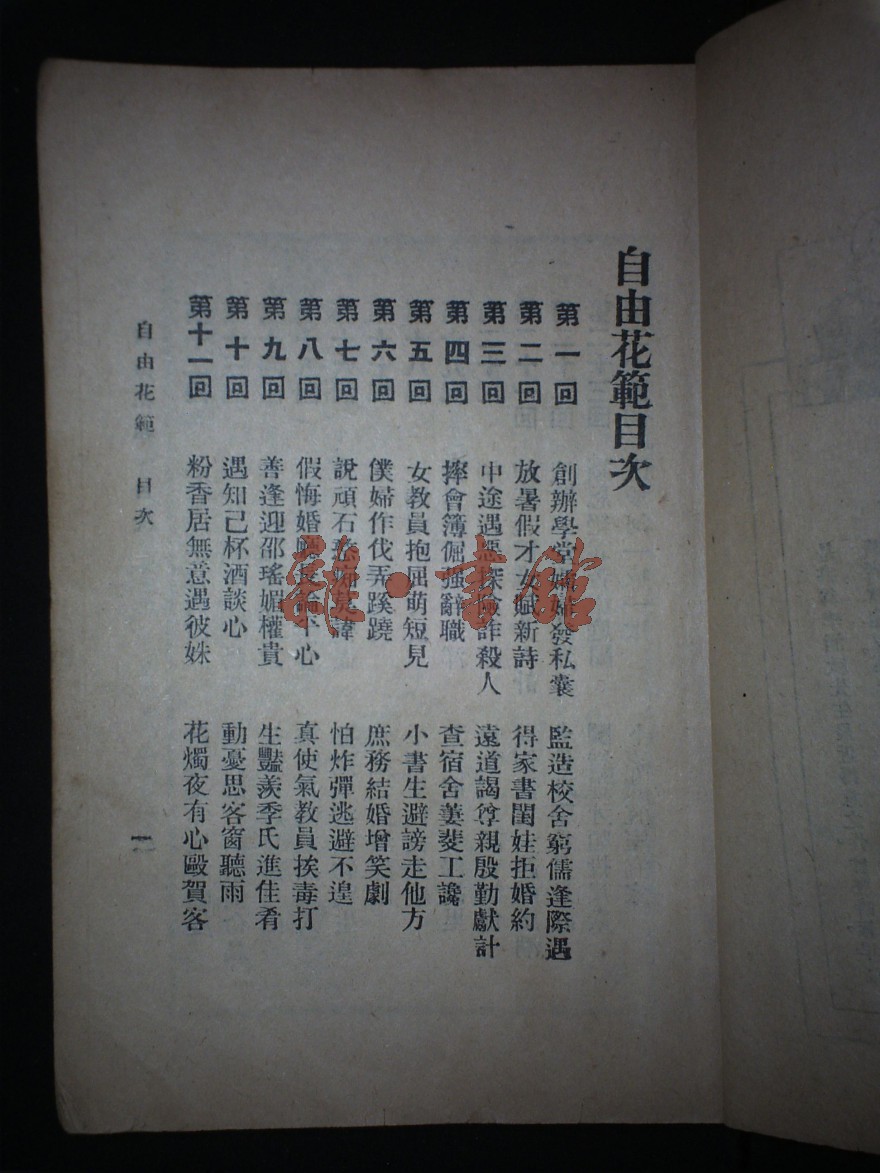 自由花範目次
第一回 創辦學堂嫠婦發私囊 監造校舍窮儒逢際遇
第二回 放暑假才女賦新詩 得家書閨娃拒婚約
第三回 中途遇惡探險詐殺人 遠道謁尊親殷勤獻計
第四回 摔會簿倔强辭職 查宿舍萋斐工讒
第五回 女教員抱屈萌短見 小書生避謗走他方
第六回 僕婦作伐弄蹊蹺 庶務結婚增笑劇
第七回 說頑石 痴莫諱 怕炸彈逃避不遑
第八回 假悔婚 長論下心 真使氣教員挨毒打
第九回 善逢迎邵瑤媚權貴 生豔羨季氏進佳肴
第十回 遇知己杯酒談心 動憂思客窗聽雨
第十一回 粉香居無意遇彼姝 花燭夜有心毆賀客
自由花範 目次
一
雜·書館